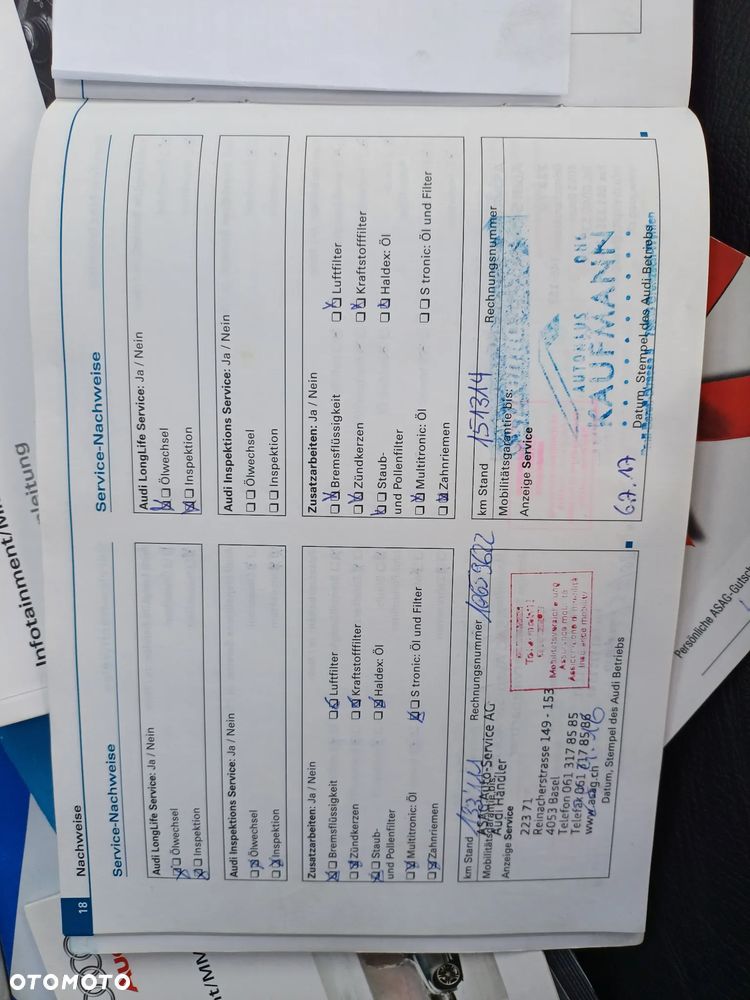 18
Nachweise
Service-Nachweise
Audi LongLife Service: Ja / Nein
Ölwechsel
Inspektion
Audi Inspektions Service: Ja / Nein
Ölwechsel
Inspektion
Zusatzarbeiten: Ja / Nein
Bremsflüssigkeit
Luftfilter
Zündkerzen
Kraftstofffilter
Staub-
und Pollenfilter
Haldex: Öl
Multitronic: Öl
S tronic: Öl und Filter
Zahnriemen
km Stand
Rechnungsnummer
Mobilitätsgarantie bis:
Anzeige Service
ASAG Auto-Service AG
Audi Händler
223 71
Reinacherstrasse 149 - 153
4053 Basel
Telefon 061 317 85 85
Telefax 061 317 85 86
www.asag.ch
Mobilitätsversicherung
Datum, Stempel des Audi Betriebs
Service-Nachweise
Audi LongLife Service: Ja / Nein
Ölwechsel
Inspektion
Audi Inspektions Service: Ja / Nein
Ölwechsel
Inspektion
Zusatzarbeiten: Ja / Nein
Bremsflüssigkeit
Luftfilter
Zündkerzen
Kraftstofffilter
Staub-
und Pollenfilter
Haldex: Öl
Multitronic: Öl
S tronic: Öl und Filter
Zahnriemen
km Stand 151314
Rechnungsnummer
Mobilitätsgarantie bis:
Anzeige Service
AUTOHAUS
KAUFMANN
OHG
6.7.17
Datum, Stempel des Audi Betriebs
Infotainment/MM
leitung
Persönliche ASAG-Gutsch
Aud
t/MM
OTOMOTO